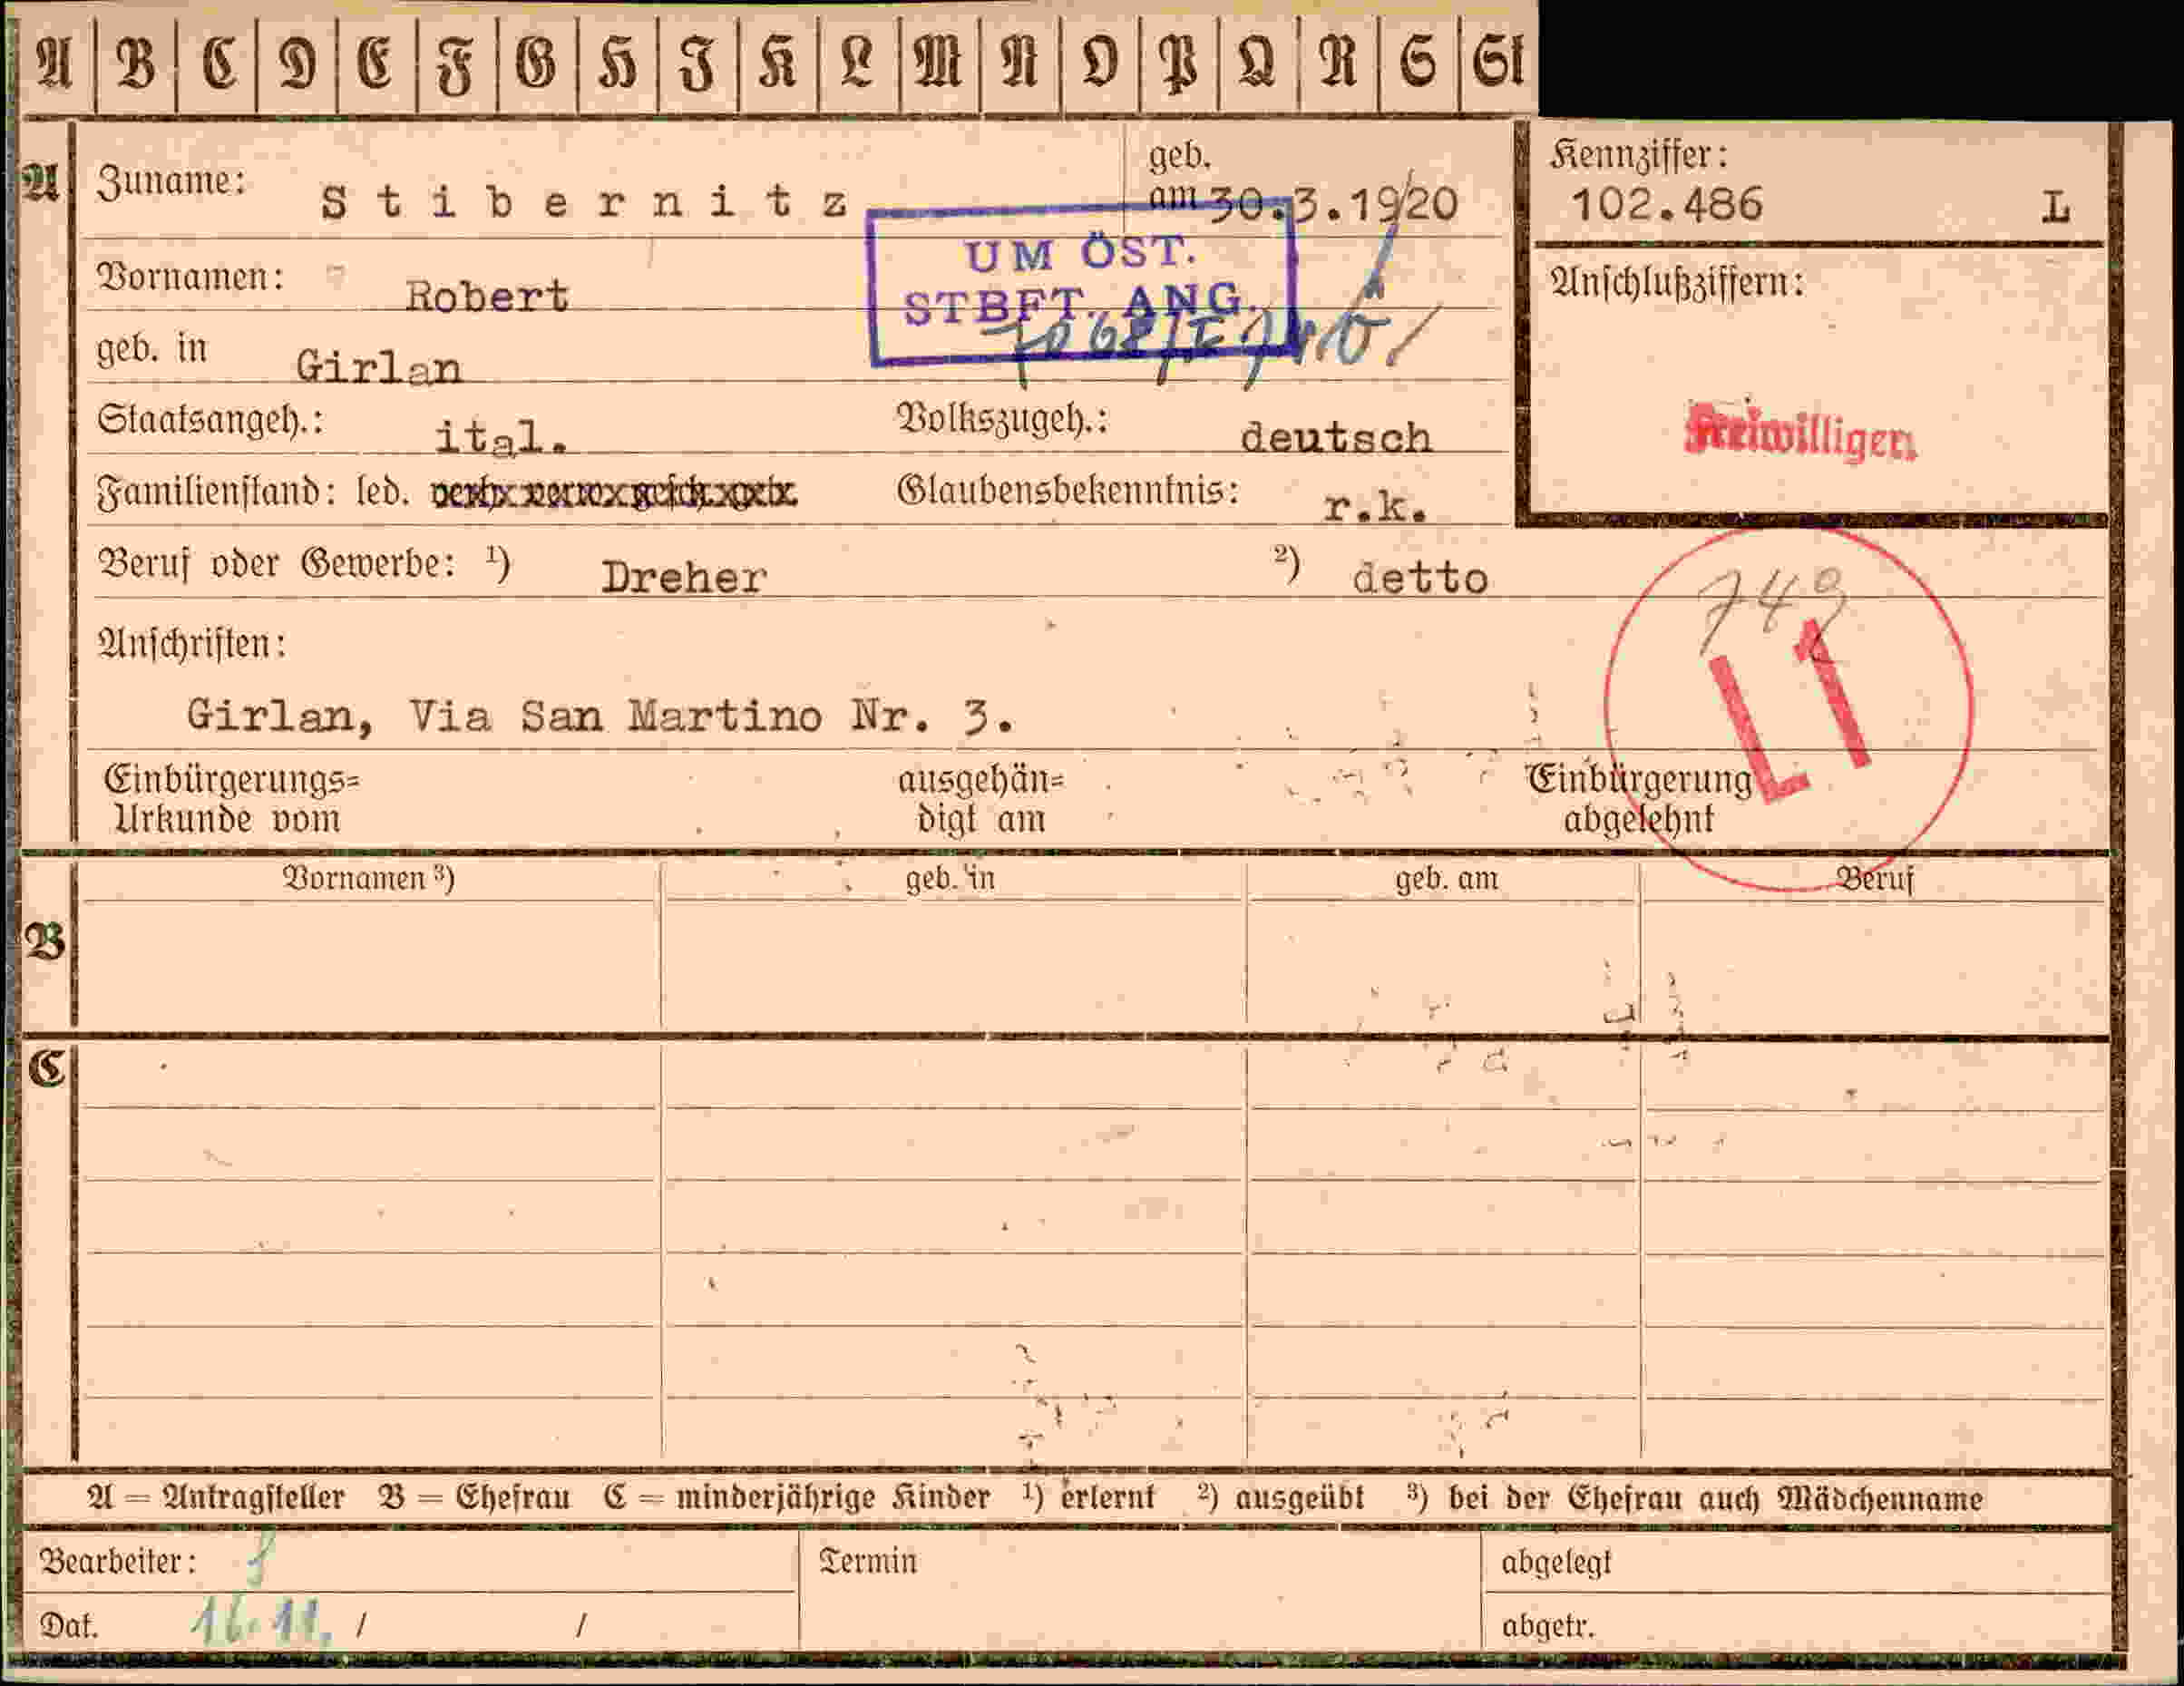 A B C D E F G H J K L M N O P Q R S St
A
Zuname: Stibernitz
geb. am 30.3.1920
Kennziffer:
102.486 L
UM ÖST.
STBFT. ANG.
Vornamen: Robert
Anschlußziffern:
geb. in Girlan
Staatsangeh.: ital. Volkszugeh.: deutsch
Freiwilligen
Familienstand: led. Glaubensbekenntnis: r.k.
Beruf oder Gewerbe: ¹) Dreher ²) detto
749
L1
Anschriften:
Girlan, Via San Martino Nr. 3.
Einbürgerungs= ausgehän= Einbürgerung
Urkunde vom digt am abgelehnt
Vornamen ³) geb. in geb. am Beruf
B
C
A = Antragsteller B = Ehefrau C = minderjährige Kinder ¹) erlernt ²) ausgeübt ³) bei der Ehefrau auch Mädchenname
Bearbeiter: Termin abgelegt
Dat. 16.11. / / abgetr.